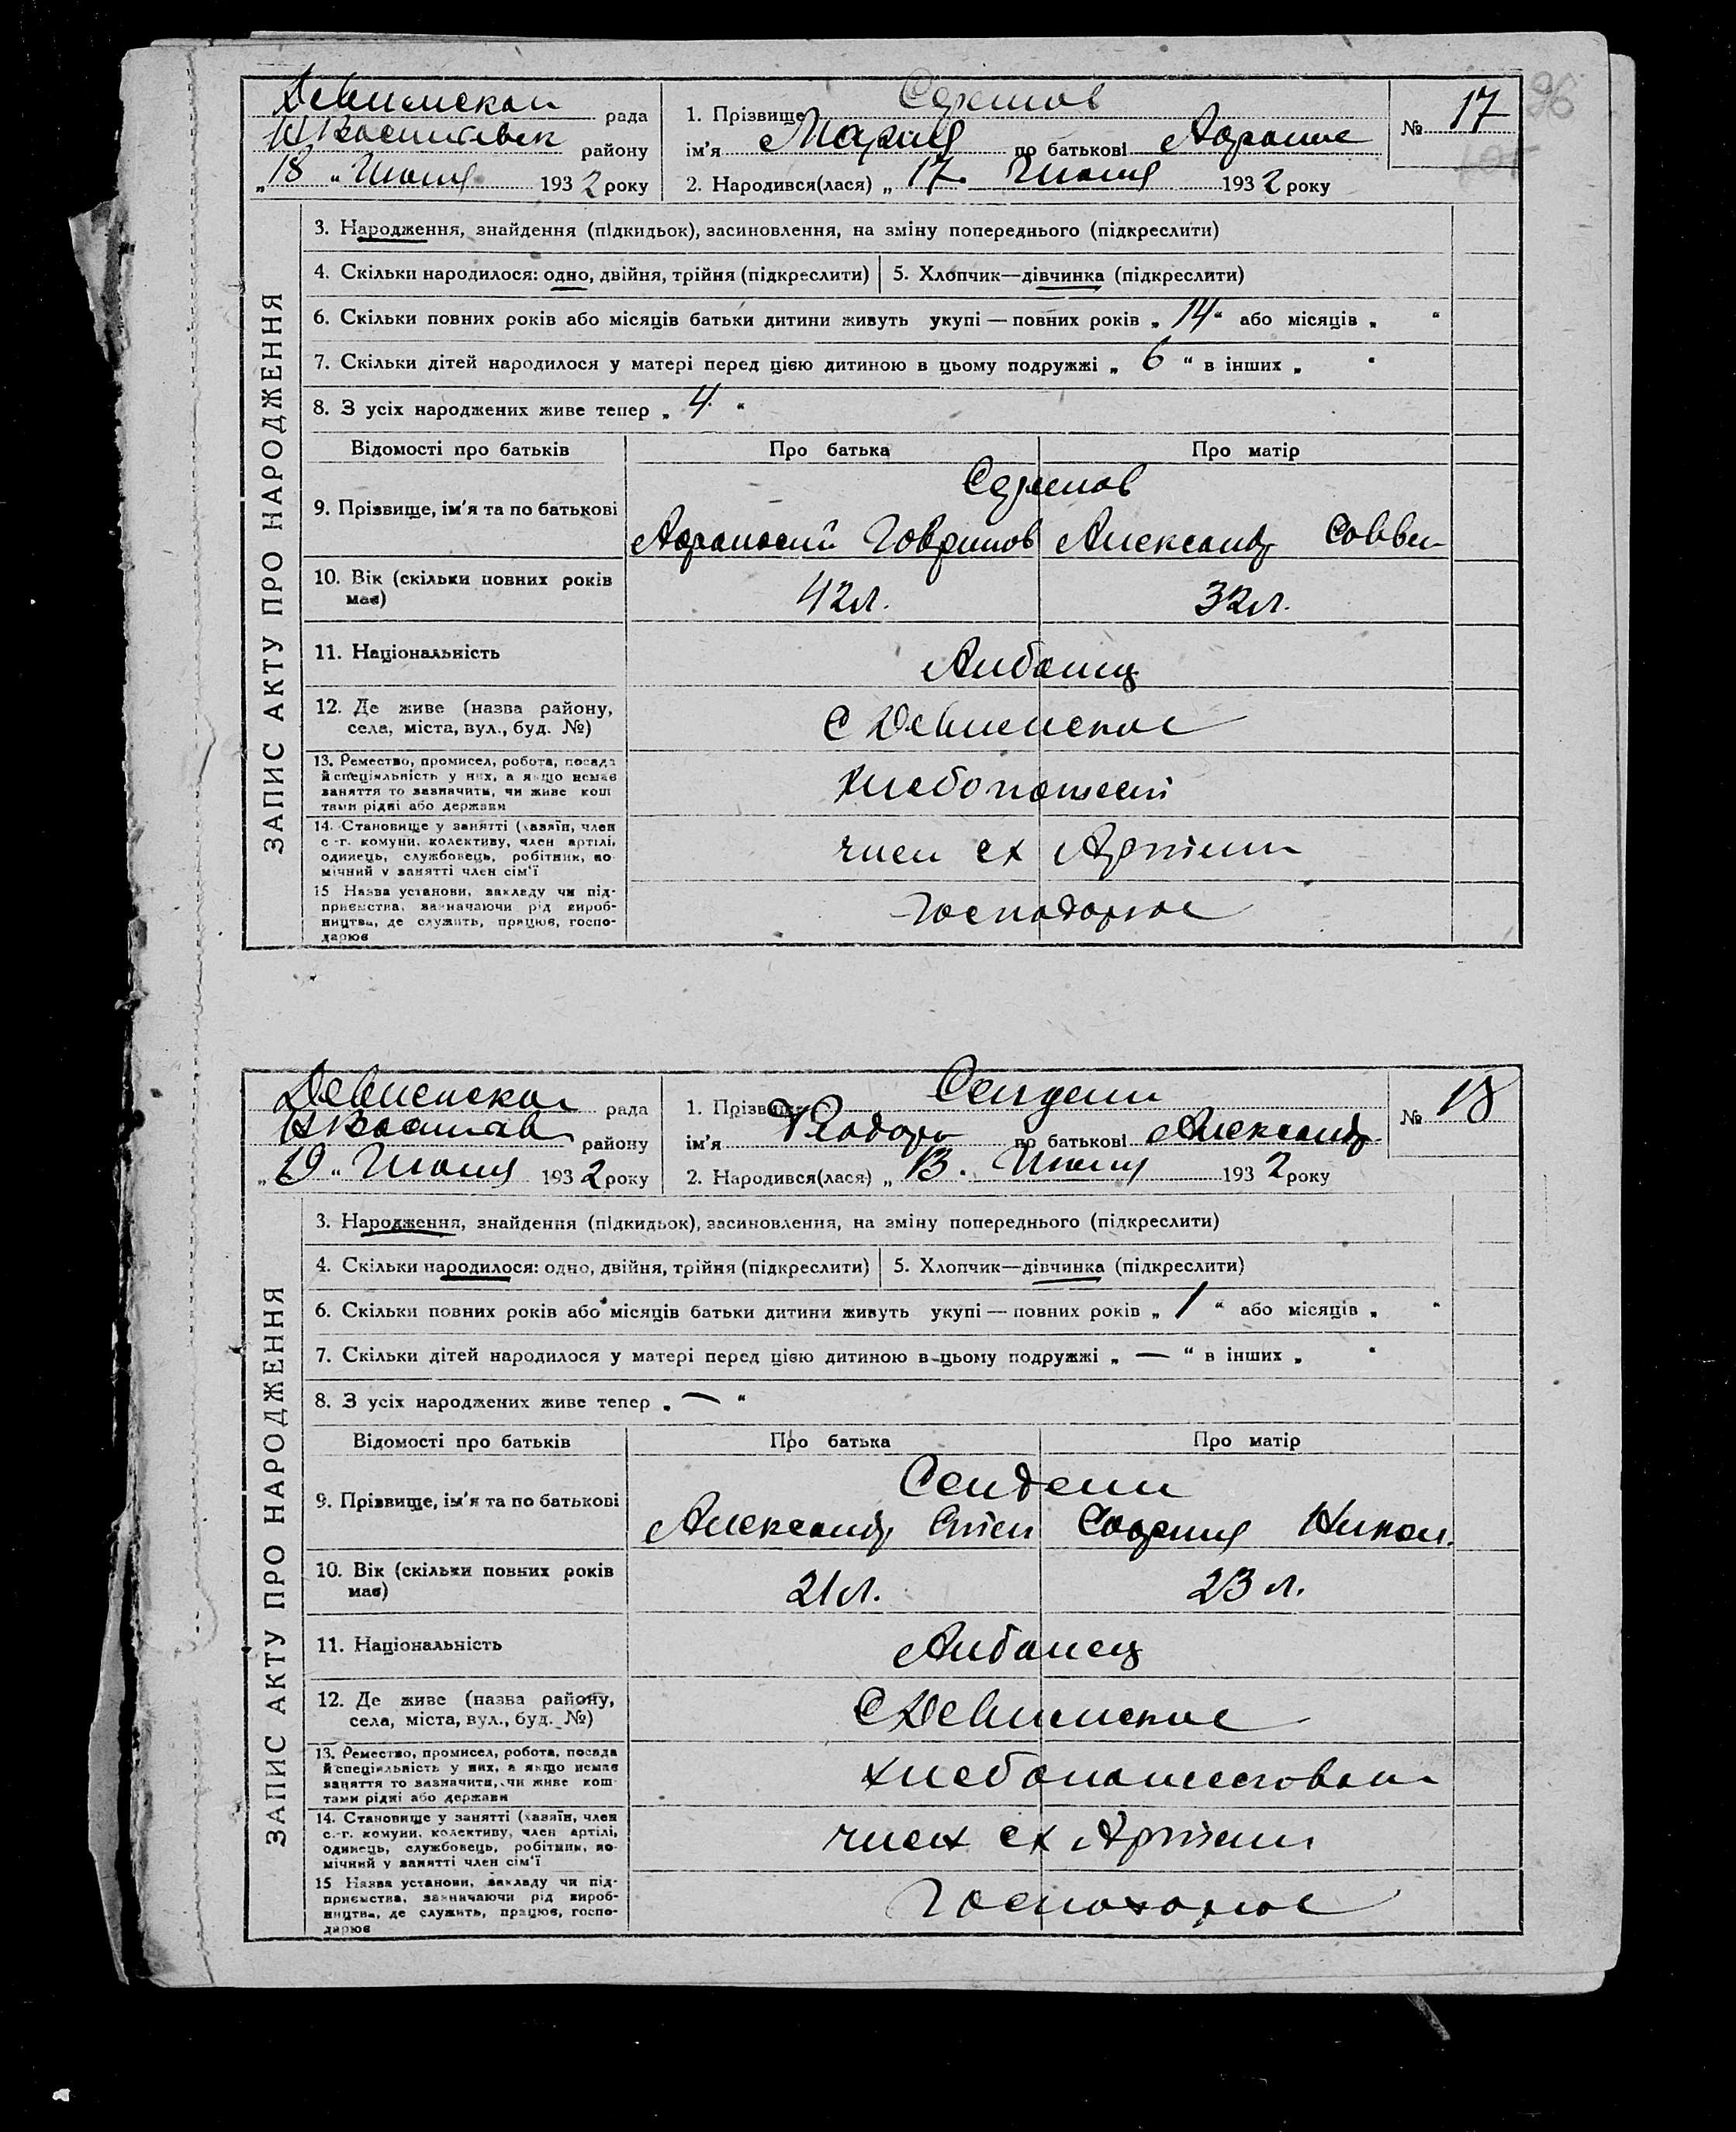 Девненскои рада
району
„18“ Июня 1932 року
1. Прізвище
ім'я Мария по батькові Афанас
2. Народився(лася) „17. Июня 1932 року
№ 17
96
ЗАПИС АКТУ ПРО НАРОДЖЕННЯ
3. Народження, знайдення (підкидьок), засиновлення, на зміну попереднього (підкреслити)
4. Скільки народилося: одно, двійня, трійня (підкреслити) 5. Хлопчик—дівчинка (підкреслити)
6. Скільки повних років або місяців батьки дитини живуть укупі — повних років „ 14 “ або місяців „ “
7. Скільки дітей народилося у матері перед цією дитиною в цьому подружжі „ 6 “ в інших „ “
8. З усіх народжених живе тепер „ 4 “
Відомості про батьків Про батька Про матір
9. Прізвище, ім'я та по батькові
Афанасий Гаврилов Александр Савви
10. Вік (скільки повних років
має)
42 л. 32 л.
11. Національність
Албанц
12. Де живе (назва району,
села, міста, вул., буд. №)
С Девненское
13. Ремество, промисел, робота, посада
й спеціяльність у них, а якщо немає
заняття то зазначити, чи живе кош
тами рідні або держави
Хлебопашест
14. Становище у занятті (хазяїн, член
с.-г. комуни, колективу, член артілі,
одинець, службовець, робітник, по-
мічний у занятті член сім'ї
член сх Артели
15 Назва установи, закладу чи під-
приємства, зазначаючи рід вироб-
ництва, де служить, працює, госпо-
дарює
Девненскои рада
району
„19“ Июня 1932 року
1. Прізвище Сендели
ім'я Феодора по батькові Александр
2. Народився(лася) „13. Июня 1932 року
№ 18
ЗАПИС АКТУ ПРО НАРОДЖЕННЯ
3. Народження, знайдення (підкидьок), засиновлення, на зміну попереднього (підкреслити)
4. Скільки народилося: одно, двійня, трійня (підкреслити) 5. Хлопчик—дівчинка (підкреслити)
6. Скільки повних років або місяців батьки дитини живуть укупі — повних років „ 1 “ або місяців „ “
7. Скільки дітей народилося у матері перед цією дитиною в цьому подружжі „ — “ в інших „ “
8. З усіх народжених живе тепер „ — “
Відомості про батьків Про батька Про матір
9. Прізвище, ім'я та по батькові
Сендели
Александр Степ София Никол.
10. Вік (скільки повних років
має)
21 л. 23 л.
11. Національність
Албанец
12. Де живе (назва району,
села, міста, вул., буд. №)
С Девненское
13. Ремество, промисел, робота, посада
й спеціяльність у них, а якщо немає
заняття то зазначити, чи живе кош-
тами рідні або держави
14. Становище у занятті (хазяїн, член
с.-г. комуни, колективу, член артілі,
одинець, службовець, робітник, по-
мічний у занятті член сім'ї
член сх Артели
15 Назва установи, закладу чи під-
приємства, зазначаючи рід вироб-
ництва, де служить, працює, госпо-
дарює